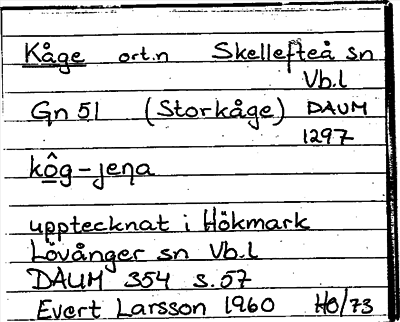 Kåge ort.n Skellefteå sn
Vb.l
Gn 51 (Storkåge) DAUM
1297
kôg-jeɳa
upptecknat i Hökmark
Lövånger sn Vb.l
DAUM 354 s.57
Evert Larsson 1960 HO/73